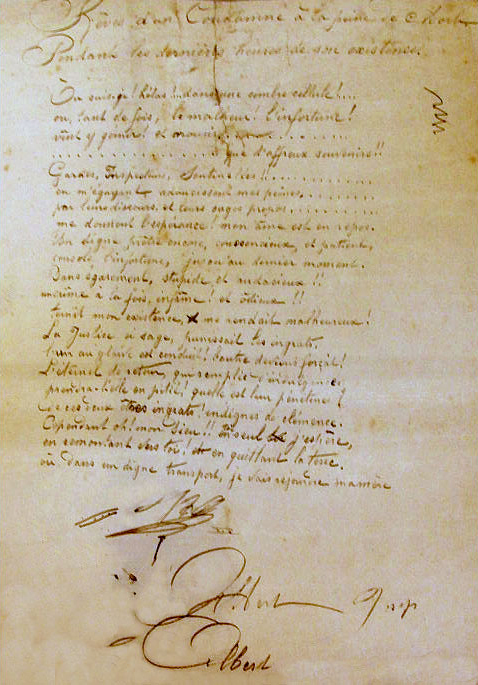 Rêves d'un Condamné à la peine de Mort
Pendant les dernières heures de son existence.
Où suis-je! hélas! dans une sombre cellule!...
où, tant de fois, le malheur! l'infortune!
vint y gémir! et mourir
que d'affreux souvenirs!!
Gardes, Inspecteurs, Sentinelles!!
en m'égayant adoucissent mes peines,
par leurs discours, et leurs sages propos
me donnent l'espérance! mon âme est en repos.
Un digne prêtre encore, consciencieux, et patient,
console l'infortune, jusqu'au dernier moment.
Dans égarement, stupide, et audasieux!!
à la fois, infâme! et odieux!!
ternit mon existence, me rendait malheureux!
La Justice si sage, punissait les ingrats,
l'un au glaive est conduit! l'autre devient forçat!
L'éternel de retour, qui remplie d'indulgences,
prendra-t-elle en pitié! quelle est leur pénitence!
de ces deux êtres ingrats! indignes de clémence.
Cependant oh! mon Dieu!! toi seul j'espère,
en remontant vers toi! et en quittant la terre.
où dans un digne transport, je vais rejoindre ma mère
Albert